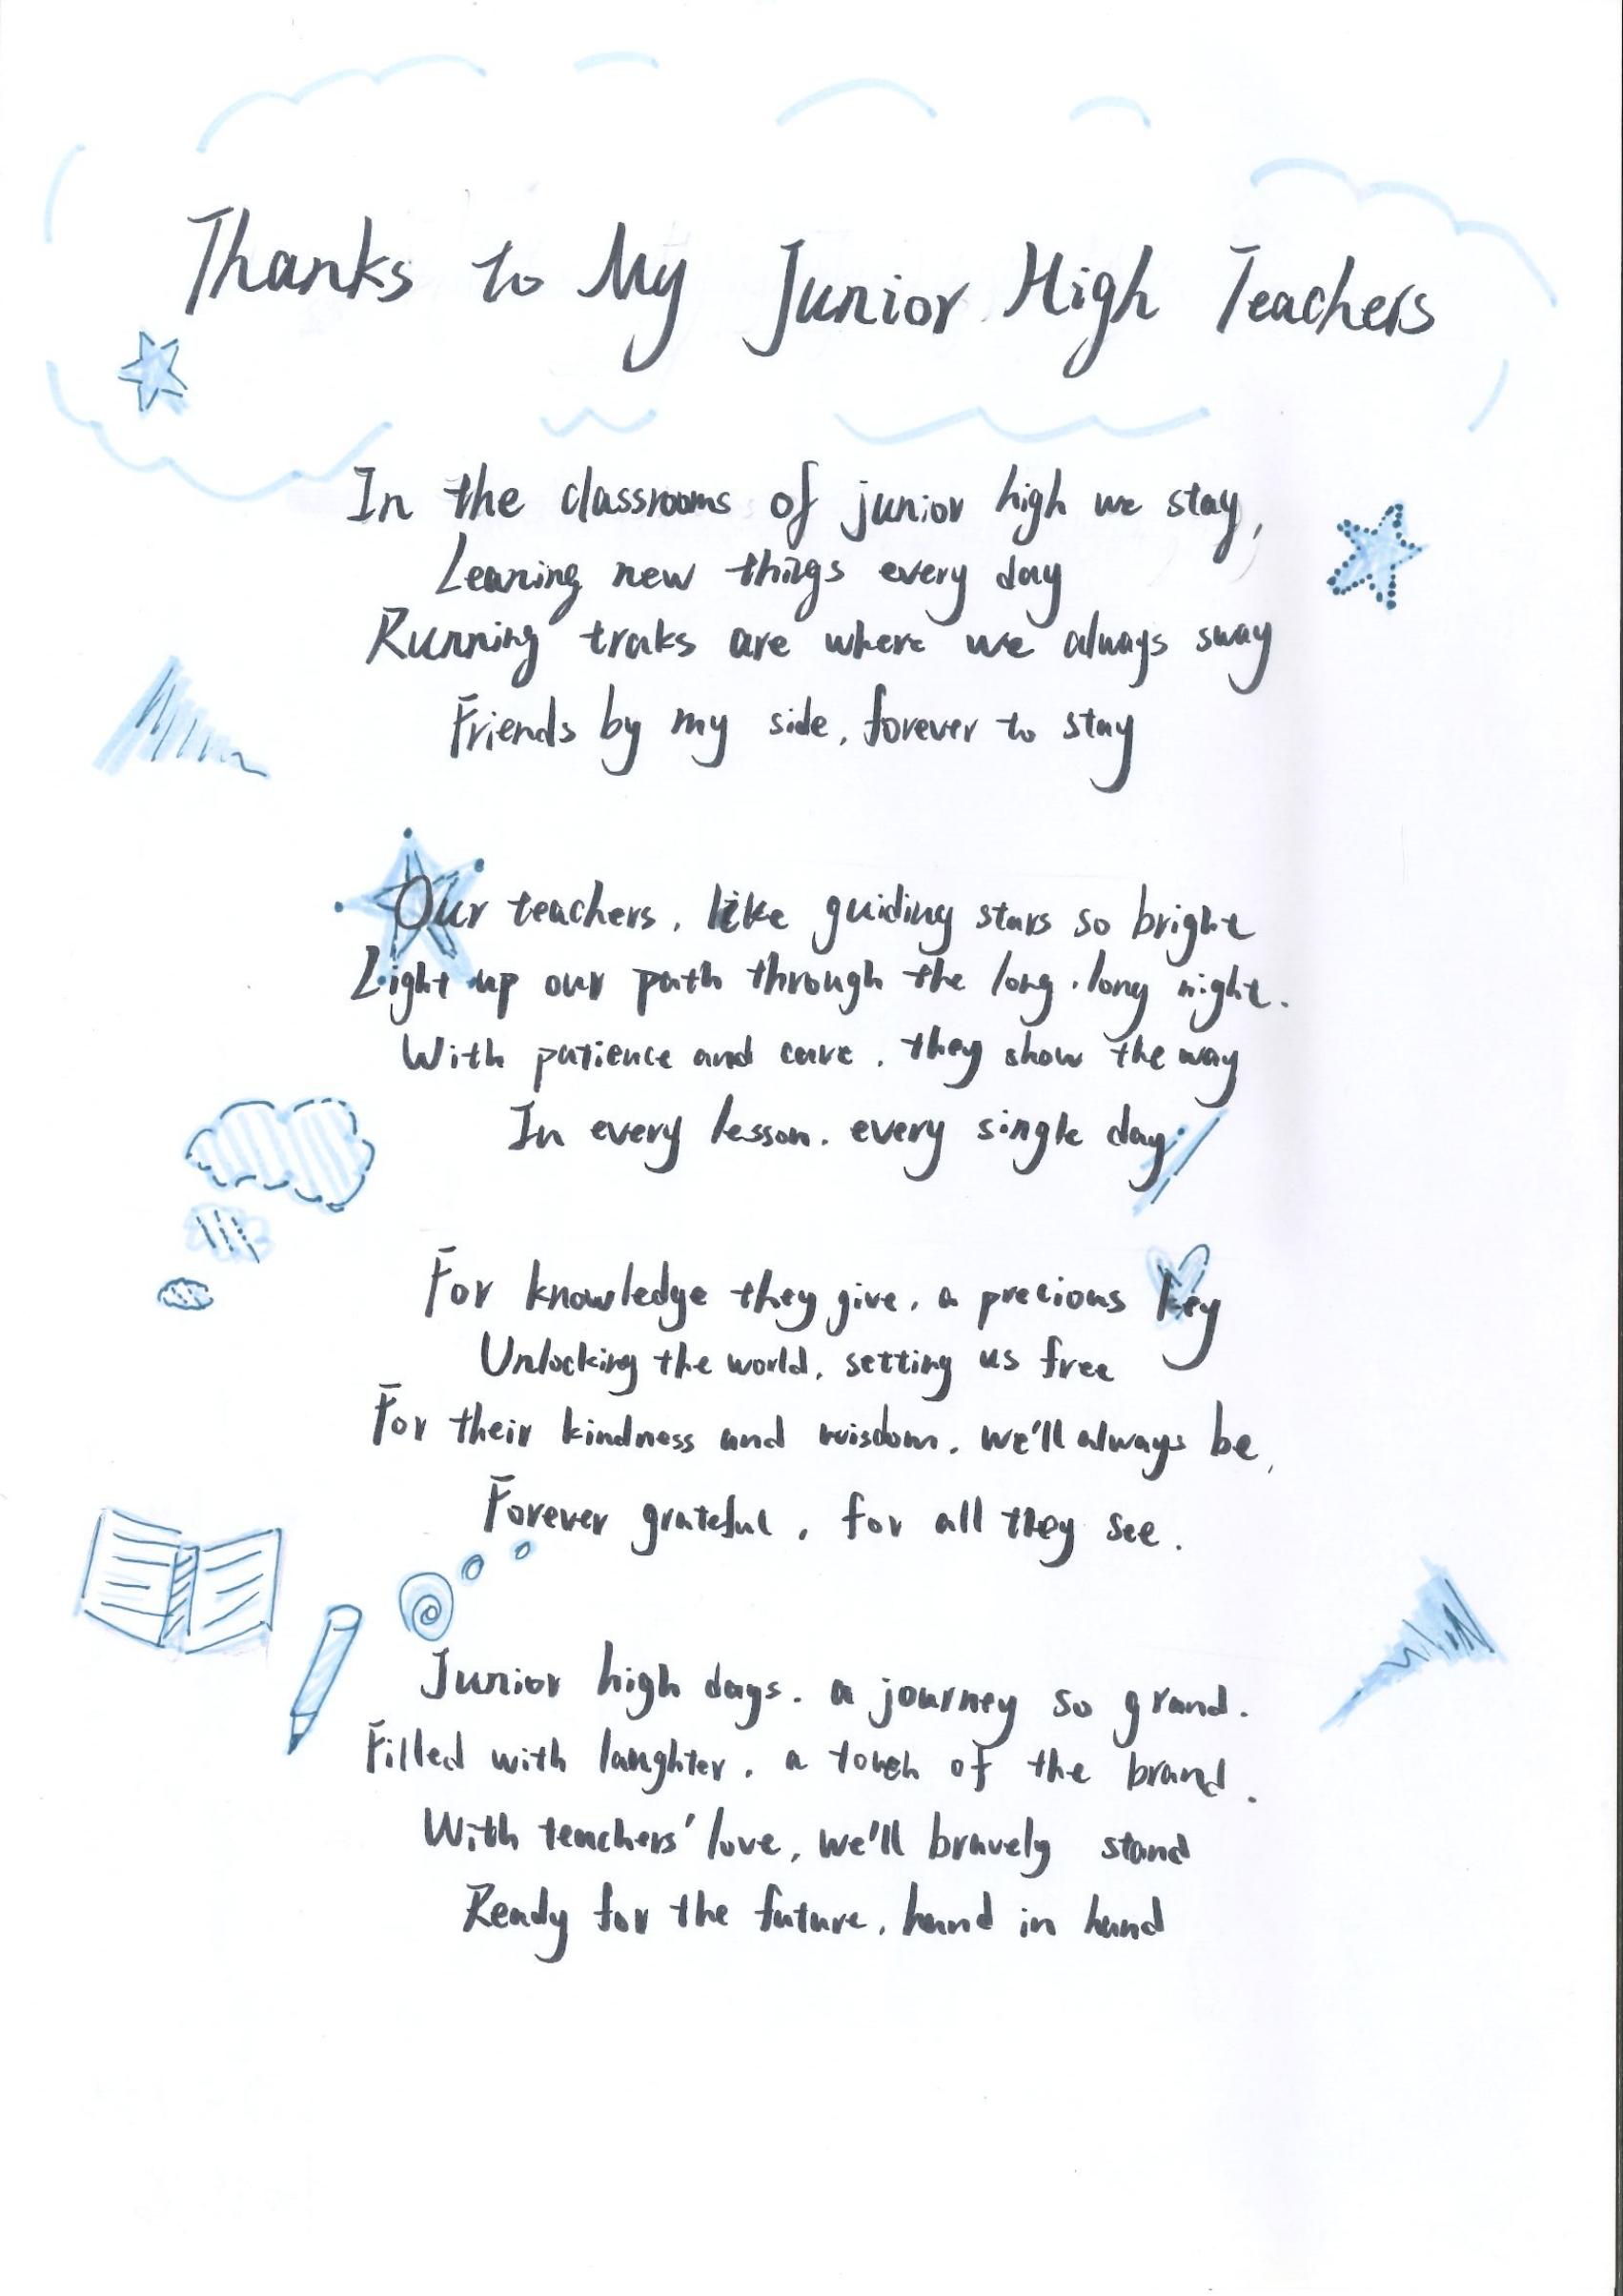 Thanks to My Junior High Teachers
In the classrooms of junior high we stay,
Leaning new things every day
Running traks are where we always sway
Friends by my side, forever to stay
Our teachers, like guiding stars so bright
Light up our path through the long, long night.
With patience and care, they show the way
In every lesson, every single day.
For knowledge they give, a precious key
Unlocking the world, setting us free
For their kindness and wisdom, we'll always be,
Forever grateful, for all they see.
Junior high days, a journey so grand.
Filled with laughter, a touch of the brand.
With teachers' love, we'll bravely stand
Ready for the future, hand in hand